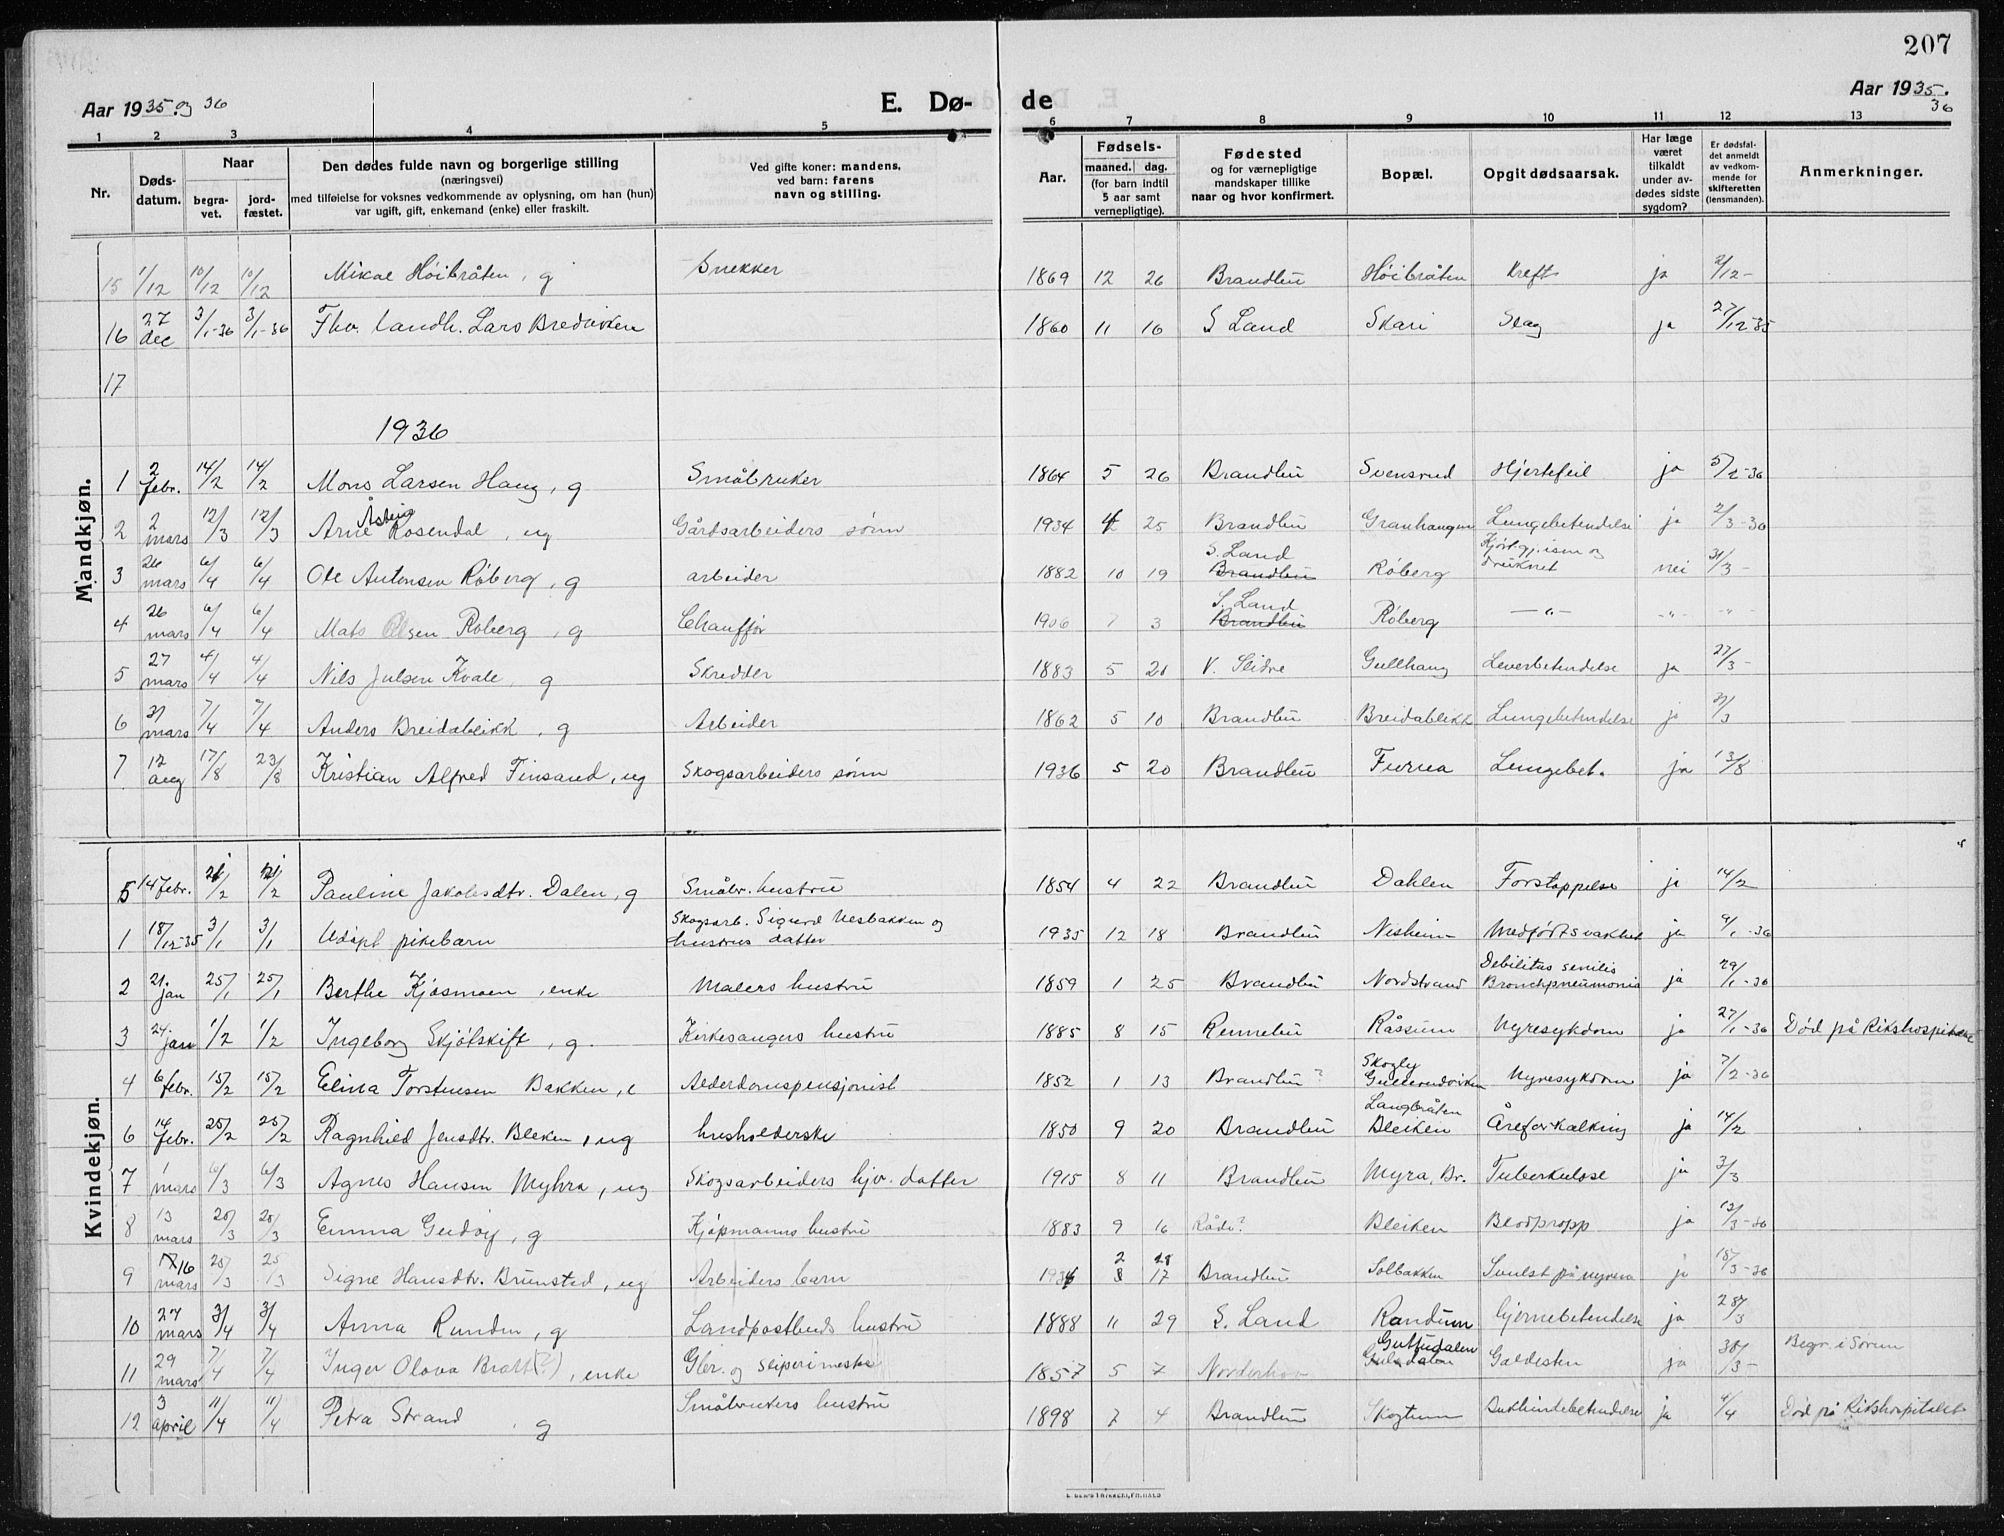 207
Aar 1935 og 36
E. Dø-
de
Aar 1935.
36
1 2 3 4 5 6 7 8 9 10 11 12 13
Nr.
Døds-
datum.
Naar
begra-
vet.
jord-
fæstet.
Den dødes fulde navn og borgerlige stilling
(næringsvei)
med tilføielse for voksnes vedkommende av oplysning, om han (hun)
var ugift, gift, enkemand (enke) eller fraskilt.
Ved gifte koner: mandens,
ved barn: farens
navn og stilling.
Aar.
Fødsels-
maaned. dag.
(for barn indtil
5 aar samt
vernepligtige).
Fødested
og for værnepligtige
mandskaper tillike
naar og hvor konfirmert.
Bopæl.
Opgit dødsaarsak.
Har læge
været
tilkaldt
under av-
dødes sidste
sygdom?
Er dødsfal-
det anmeldt
av vedkom-
mende for
skifteretten
(lensmanden).
Anmerkninger.
Mandkjøn.
15 1/12 10/12 10/12 Mikal Høibråten, g Snekker 1869 12 26 Brandbu Høibråten Kreft ja 2/12-
16 27 dec 3/1-36 3/1-36 Fhv. landh. Lars Bredviken 1860 11 16 S Land Skari Slag ja 27/12-35
17
1936
1 2 febr. 14/2 14/2 Mons Larsen Haug, g Småbruker 1864 5 26 Brandbu Svensrud Hjertefeil ja 5/2-36
2 2 mars 12/3 12/3 Arne Åsteig Rosendal, ug Gårdsarbeiders sønn 1934 4 25 Brandbu Granhaugen Lungebetendelse ja 2/3-36
3 26 mars 6/4 6/4 Ole Antonsen Røberg, g arbeider 1882 10 19 S. Land Brandbu Røberg Kjørt gj. isen og druknet nei 31/3-
4 26 mars 6/4 6/4 Mats Olsen Røberg, g Chauffør 1906 7 3 S. Land Brandbu Røberg -"- -"- -"-
5 27 mars 4/4 4/4 Nils Julsen Kvale, g Skredder 1883 5 20 V. Slidre Gullhaug Leverbetendelse ja 27/3-
6 31 mars 7/4 7/4 Anders Breidablikk, g Arbeider 1862 5 10 Brandbu Breidablikk Lungebetendelse ja 31/3
7 12 aug 17/8 23/8 Kristian Alfred Finsand, ug Skogsarbeiders sønn 1936 5 20 Brandbu Furua Lungebet. ja 13/8
Kvindekjøn.
5 14 febr. 21/2 21/2 Pauline Jakobsdtr. Dalen, g Småbr. hustru 1854 4 22 Brandbu Dahlen Forstoppelse ja 14/2
1 18/12-35 3/1 3/1 Udøpt pikebarn Skogsarb. Sigurd Nesbakken og hustrus datter 1935 12 18 Brandbu Nesheim Medfødt svakhet ja 9/1-36
2 21. jan 25/1 25/1 Berthe Kjosmoen, enke Malers hustru 1859 1 25 Brandbu Nordstrand Debilitas senilis Bronchpneumonia ja 29/1-36
3 24. jan 1/2 1/2 Ingeborg Skjølskift, g. Kirkesangers hustru 1885 8 15 Rennebu Råssum Nyresykdom ja 27/1-36 Død på Rikshospitalet
4 6/ febr. 15/2 15/2 Elina Torstensen Bakken, e Alderdomspensjonist 1852 1 13 Brandbu? Skogly Gullerudviken Nyresykdom ja 7/2-36
6 14 febr. 25/2 25/2 Ragnhild Jensdtr. Bleken, ug husholderske 1850 9 20 Brandbu Langbråten Bleiken Åreforkalking ja 14/2
7 1 mars 6/3 6/3 Agnes Hansen Myhra, ug Skogsarbeiders hjv. datter 1915 8 11 Brandbu Myra, Br. Tuberkulose ja 3/3
8 13 mars 20/3 20/3 Emma Gudvig, g Kjøpmanns hustru 1883 9 16 Råde? Bleiken Blodpropp ja 13/3-36
9 16 mars 25/3 25/3 Signe Hansdtr. Brunstad, ug Arbeiders barn 1934 2 28 8 17 Brandbu Solbakken Svulst på nyrene ja 18/3-36
10 27 mars 3/4 3/4 Anna Runden, g Landpostbuds hustru 1888 11 29 S. Land Randum hjernebetendelse ja 28/3
11 29 mars 7/4 7/4 Inger Olava Bratt(?), enke Gbr. og sliperimester 1857 5 7 Norderhov Gutfudalen Galdesten ja 30/3- Begr. i Sørum
12 3 april 11/4 11/4 Petra Strand, g Småbrukers hustru 1898 7 4 Brandbu Skogtum Bukhinnebetendelse ja 4/4 Død på Rikshospitalet